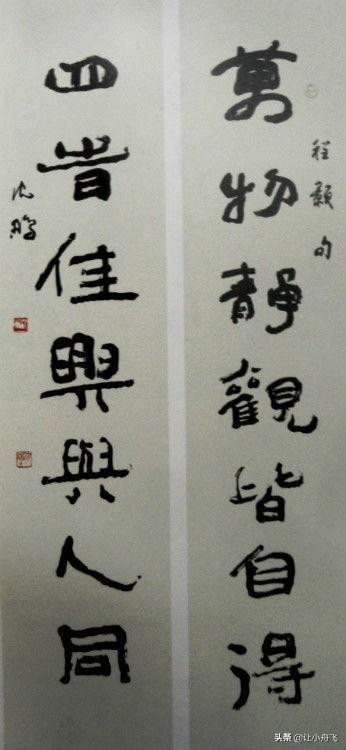 萬物靜觀皆自得
程顥句
四旹佳興與人同
沈鵬
头条 @让小舟飞